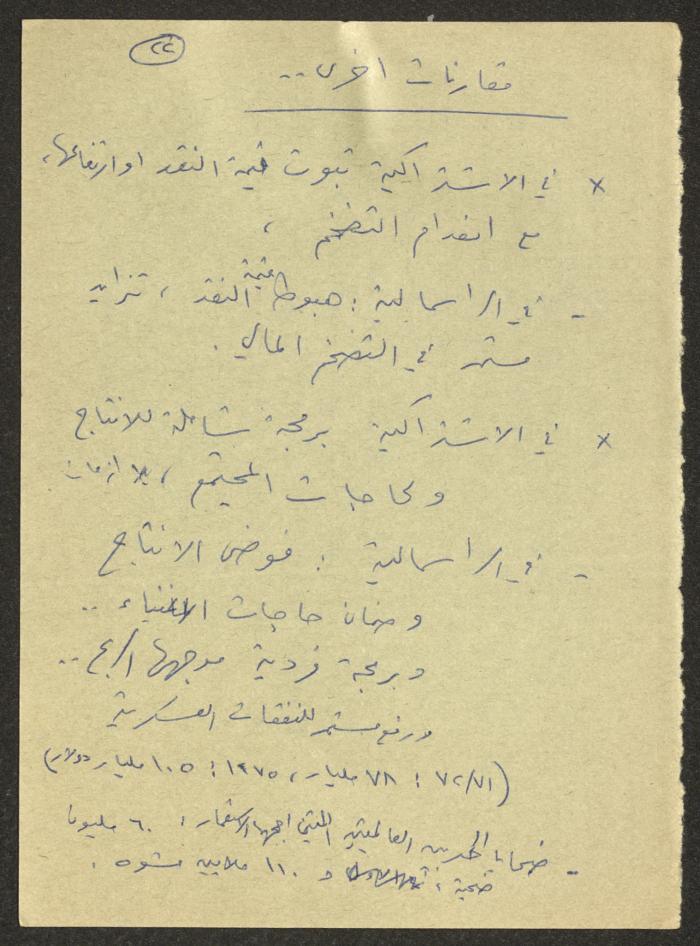 ٢٢
مقارنات اخرى ..
× في الاشتراكية ثبوت قيمة النقد او ارتفاعها،
مع انعدام التضخم ،
- في الراسمالية : هبوط قيمة النقد ، تزايد
مستمر في التضخم المالي .
× في الاشتراكية برمجة شاملة للانتاج
ولحاجات المجتمع ، بلا ازمات
- في الراسمالية : فوضى الانتاج
وضمان حاجات الاغنياء ..
وبرمجة فردية موجهها الربح ..
ورفع مستمر للنفقات العسكرية
(٧٢/٧١ : ٧٨ مليار ، ١٩٧٥ : ١٠٥ مليار دولار)
- ضحايا الحربين العالميتين اللتين اججهما الاستعمار : ٦٠ مليونا
ضحية ، و ١١٠ ملايين مشوه .